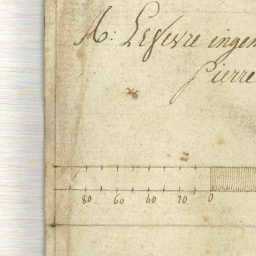 M: Lefevre ingen
Pierre
80 60 60 70 0